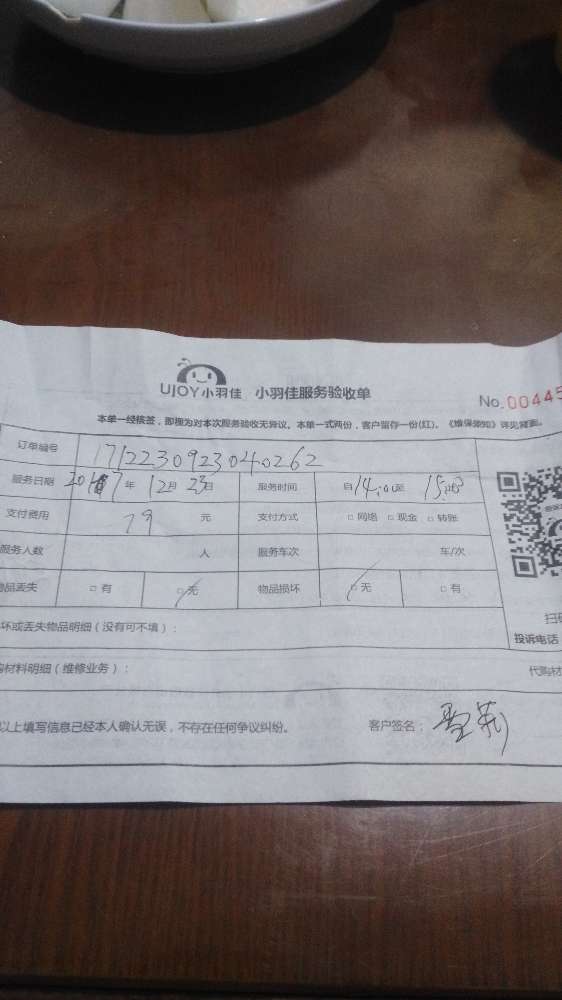 UJOY小羽佳 小羽佳服务验收单
No.00445
本单一经核签,即视为对本次服务验收无异议。本单一式两份,客户留存一份(红)。《维保须知》详见背面。
订单编号 1712230923040262
服务日期 2017年12月23日 服务时间 自14:00至
支付费用 79元 支付方式 □网络 □现金 □转账
服务人数 人 服务车次 车/次
物品丢失 □有 □无 物品损坏 □无 □有
坏或丢失物品明细(没有可不填):
扫码
投诉电话
购材料明细(维修业务): 代购材
以上填写信息已经本人确认无误,不存在任何争议纠纷。 客户签名: